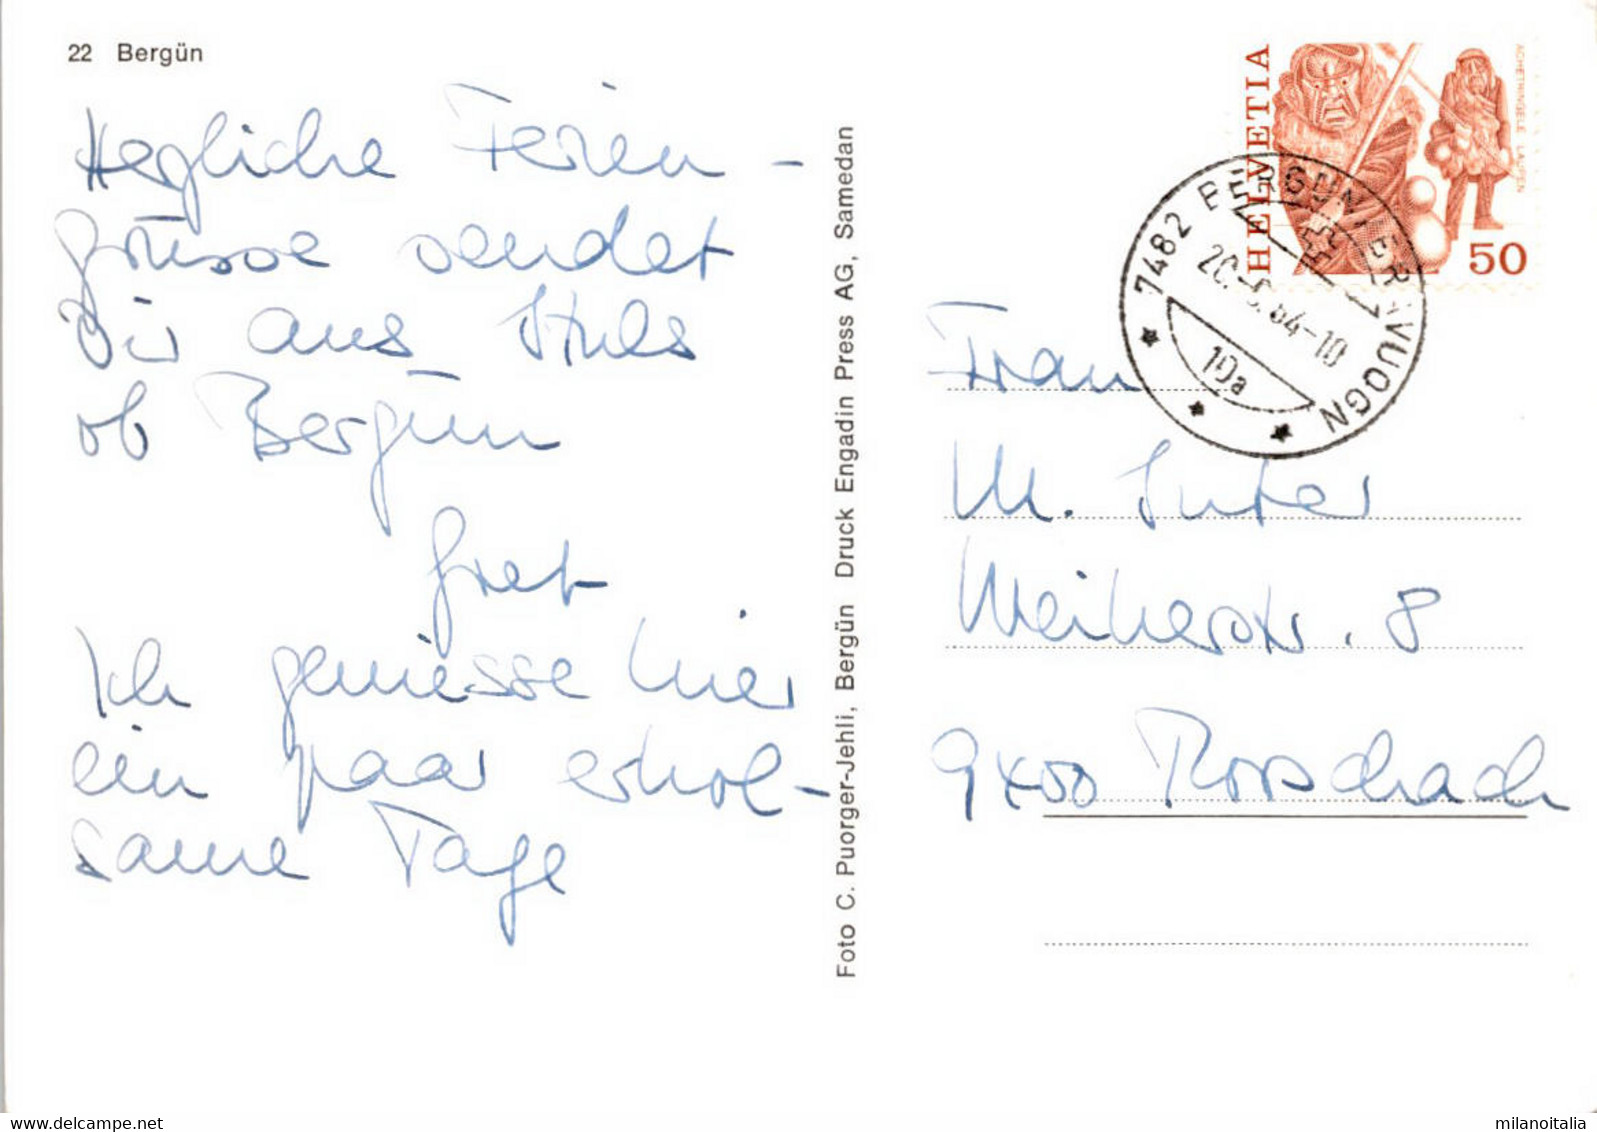 22 Bergün
Herzliche Ferien-
grüsse sendet
Dir aus Stuls
ob Bergün
Gret
Ich geniesse hier
ein paar erhol-
same Tage
Foto C. Puorger-Jehli, Bergün Druck Engadin Press AG, Samedan
HELVETIA
ACHETRINGELE LAUPEN
50
7482 BERGÜN/BRAVUOGN
84-10
10a
Frau
M. Suter
Weiherstr. 8
9400 Rorschach
22 Bergün
milanoitalia